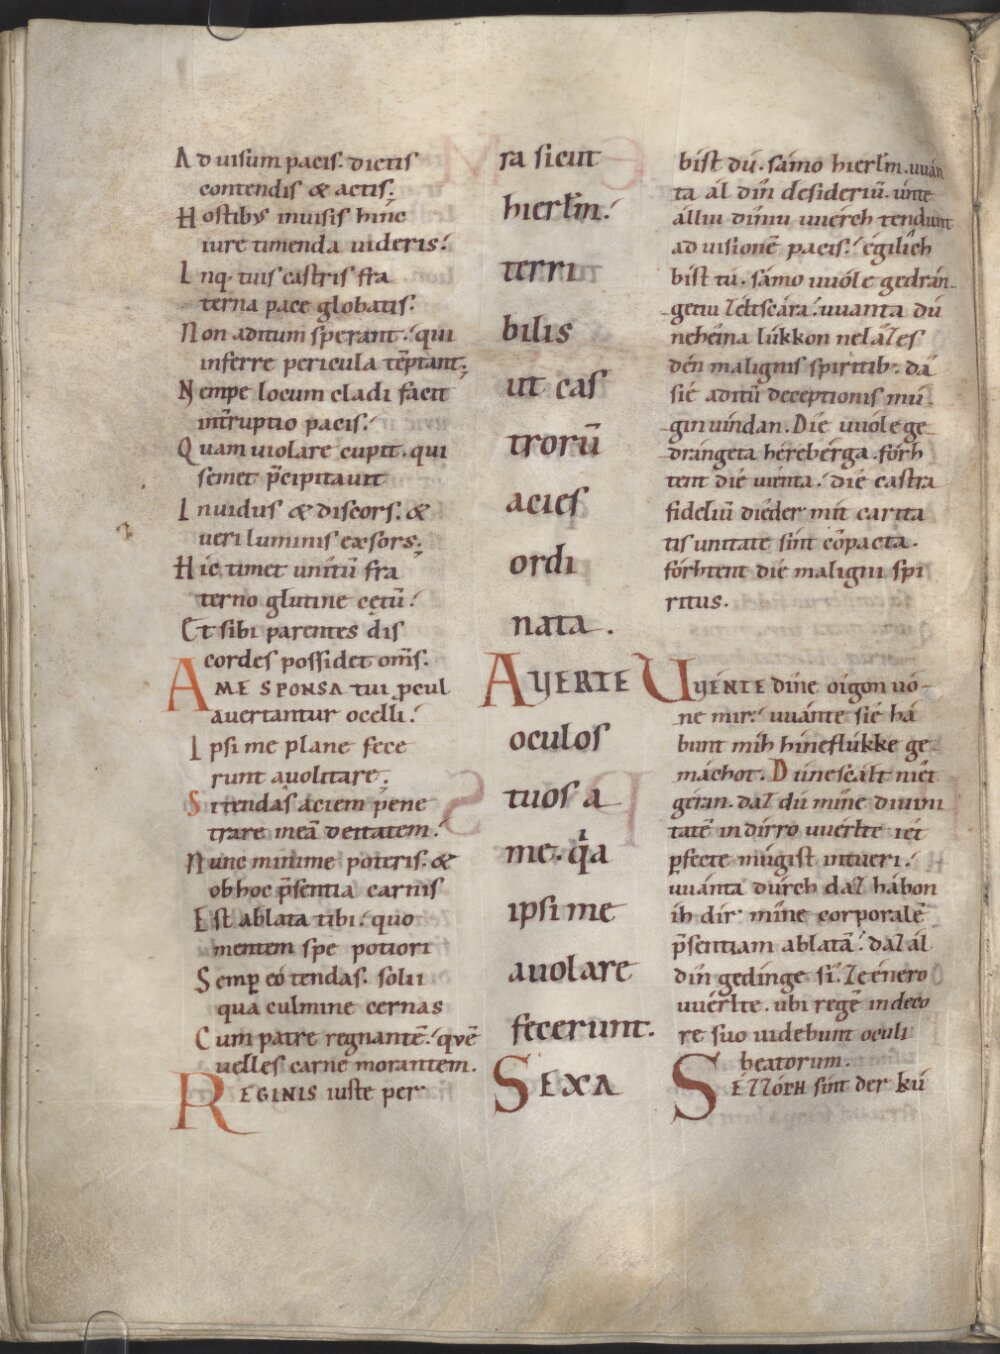 Ad uisum pacis. dictis
contendis & actis.
Hostibus inuisis hinc
iure timenda uideris.
Inq. tuis castris fra
terna pace globatis.
Non aditum sperant. qui
inferre pericula tēptant.
Nempe locum cladi facit
int̄ruptio pacis.
Quam uiolare cupit. qui
semet p̄cipitauit
Inuidus & discors. &
ueri luminis exsors.
Hic timet unitū fra
terno glutine cętū.
Et sibi parentes dis
cordes possidet om̄s.
AME SPONSA tui p̱cul
auertantur ocelli.
Ipsi me plane fece
runt auolitare.
Si tendas aciem pene
trare meā deitatem.
Nunc minime poteris. &
ob hoc p̄sentia carnis
Est ablata tibi. quo
mentem spe potiori
Semp̱ eo tendas. solii
qua culmine cernas
Cum patre regnantē. quē
uelles carne morantem.
REGINIS iuste per
ra sicut
hierl̄m.
terri
bilis
ut cas
trorū
acies
ordi
nata.
AVERTE
oculos
tuos a
me. qͥa
ipsi me
auolare
fecerunt.
SEXA
bist dū. sámo hierl̄m. uuán
ta ál dīn desideriū. únte
állíu dīniu uuérch tendunt
ad uisionē pacis. égilīch
bíst tú. sámo uuóle gedrán
getiu zéltscára. uuanta dū
nehéina lúkkon nelázes
dén malignis spiritib. dā
sié aditū deceptionis mú
gin uíndan. Díe uuóle ge
drángeta hérebérga. fórh
tent dié uíenta. dié castra
fideliū diéder mít carita
tis unitate sint cōpacta.
fórhtent die maligni spi
ritus.
UVÉNTE díne óigon uó
ne mir. uuánte sié há
bunt míh híneflúkke ge
máchot. Dúnescált niét
géran. daz dú míne diuini
tatē in dírro uuérlte iét
p̱fecte múgist intueri.
uuánta dúrch daz hábon
íh dír mīne corporalē
p̄sentiam ablatā. daz ál
dīn gedínge sī. ze énero
uuérlte. ubi regē in deco
re suo uidebunt oculi
beatorum.
SÉZZÓCH sínt der kú